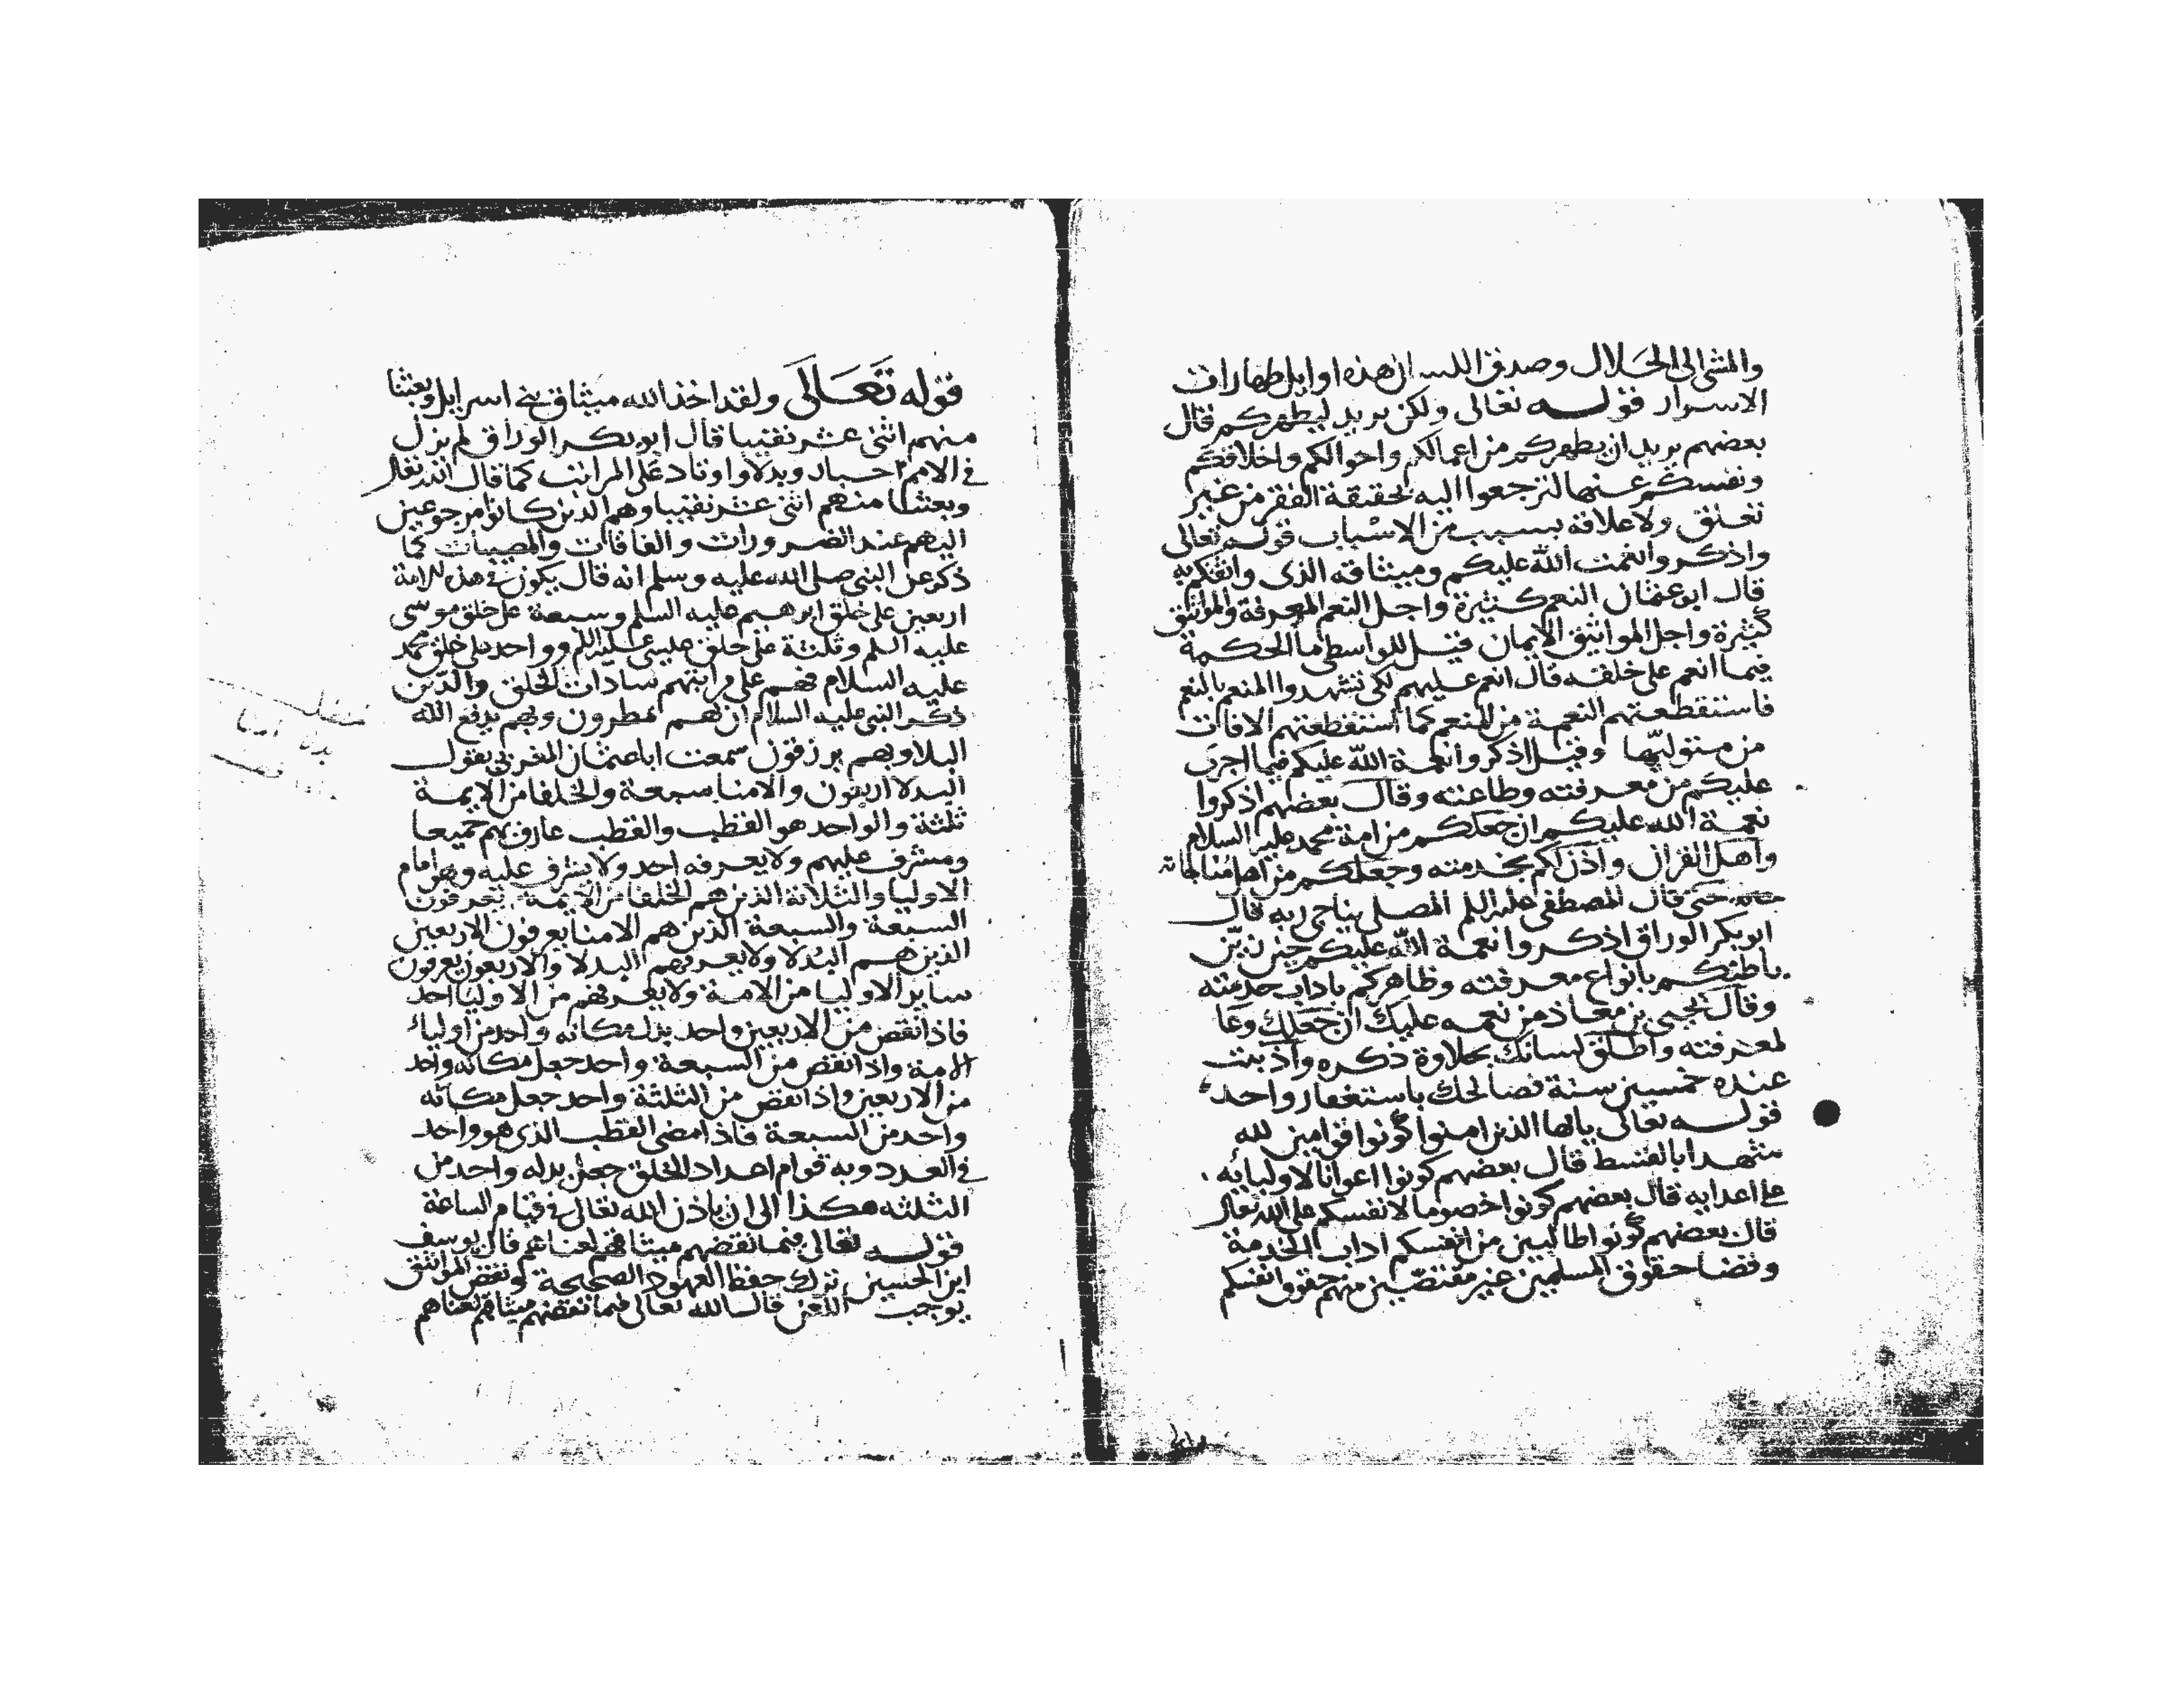 والمشى الى الحلال وصدق اللسان هذه اوايل طهارات
الاسرار قوله تعالى ولكن يريد ليطهركم قال
بعضهم يريد ان يطهركم من اعمالكم واحوالكم واخلاقكم
ونفسكم عنها لترجعوا اليه بحقيقة الفقر من غير
تعلق ولا علاقة بسبب من الاسباب قوله تعالى
واذكروا نعمت الله عليكم وميثاقه الذى واثقكم به
قال ابو عثمان النعم كثيرة واجل النعم المعرفة والمواثيق
كثيرة واجل المواثيق الايمان قيل للواسطى ما الحكمة
فيما انعم على خلقه قال انعم عليهم لكى تشهدوا المنعم بالنعم
فاستقطعتهم النعمة من المنعم كما استقطعتهم الافات
من متوليها وقيل اذكروا نعمة الله عليكم فيما اجرى
عليكم من معرفته وطاعته وقال بعضهم اذكروا
نعمة الله عليكم ان جعلكم من امة محمد عليه السلام
واهل القران واذن لكم بخدمته وجعلكم من اهل مناجاته
حتى قال المصطفى عليه السلم المصلى يناجى ربه قال
ابو بكر الوراق اذكروا نعمة الله عليكم حين زين
باطنكم بانواع معرفته وظاهركم باداب خدمته
وقال يحيى بن معاذ من نعمه عليك ان جعلك وعا
لمعرفته واطلق لسانك بحلاوة ذكره واذنبت
عنده خمسين سنة فصالحك باستغفار واحد
قوله تعالى يايها الذين امنوا كونوا قوامين لله
شهدا بالقسط قال بعضهم كونوا اعوانا لاوليايه
على اعدايه قال بعضهم كونوا خصوما لانفسكم على الله تعالى
قال بعضهم كونوا طالبين من انفسكم اداب الخدمة
وقضا حقوق المسلمين غير مقتضين منهم حقوق انفسكم
قوله تعالى ولقد اخذ الله ميثاق بنى اسرايل وبعثنا
منهم اثنى عشر نقيبا قال ابو بكر الوراق لم يزل
فى الامم اخيار وبدلا واوتاد على المراتب كما قال الله تعالى
وبعثنا منهم اثنى عشر نقيبا وهم الذين كانوا مرجوعين
اليهم عند الضرورات والفاقات والمصيبات كما
ذكر عن النبى صلى الله عليه وسلم انه قال يكون فى هذه الامة
اربعين على خلق ابرهيم عليه السلم وسبعة على خلق موسى
عليه السلم وثلثة على خلق عيسى عليه السلم وواحد على خلق محمد
عليه السلام فهم على مراتبهم سادات الخلق والذين
ذكر النبى عليه السلام ان بهم تمطرون وبهم يدفع الله
البلا وبهم يرزقون سمعت ابا عثمان المغربى يقول
البدلا اربعون والامنا سبعة والخلفا من الايمة
ثلثة والواحد هو القطب والقطب عارف بهم جميعا
ومشرف عليهم ولا يعرفه احد ولا يشرف عليه وهو امام
الاوليا والثلاثة الذين هم الخلفا من الايمة يعرفون
السبعة والسبعة الذين هم الامنا يعرفون الاربعين
الذين هم البدلا ولا يعرفهم البدلا والاربعون يعرفون
ساير الاوليا من الامة ولا يعرفهم من الاوليا احد
فاذا نقص من الاربعين واحد بدل مكانه واحد من اولياء
الامة واذا نقص من السبعة واحد جعل مكانه واحد
من الاربعين واذا نقص من الثلثة واحد جعل مكانه
واحد من السبعة فاذا مضى القطب الذى هو واحد
فى العدد وبه قوام اعداد الخلق جعل بدله واحد من
الثلثه هكذا الى ان ياذن الله تعالى فى قيام الساعة
قوله تعالى فبما نقضهم ميثاقهم لعناهم قال يوسف
ابن الحسين ترك حفظ العهود الصحيحة ونقض المواثيق
يوجب اللعن قال الله تعالى فبما نقضهم ميثاقهم لعناهم